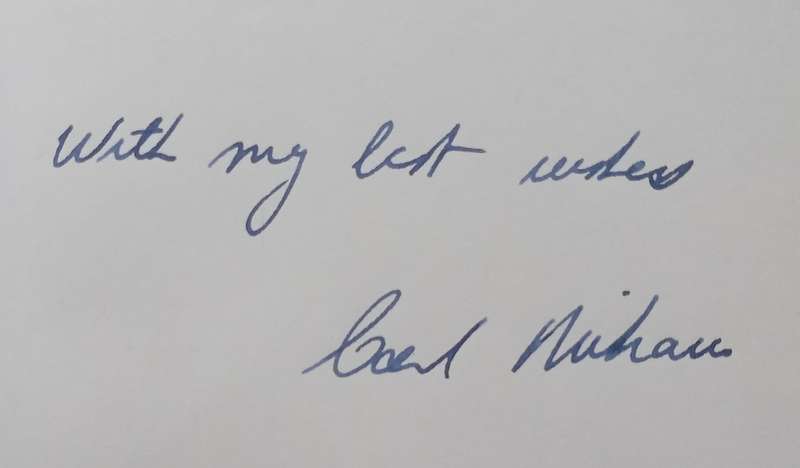 With my best wishes
Carl Niehaus